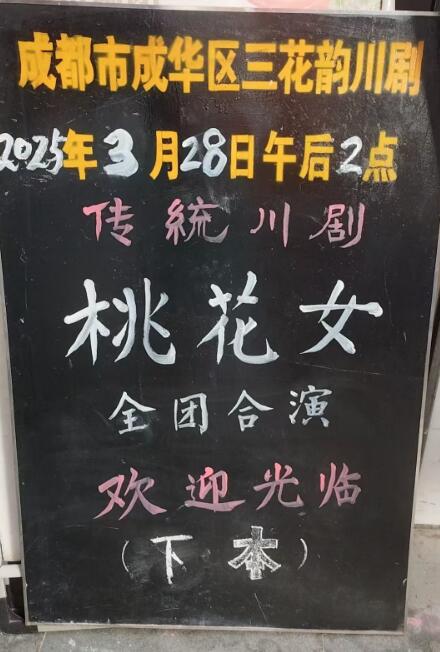 成都市成华区三花韵川剧
2025年3月28日午后2点
传統川剧
桃花女
全团合演
欢迎光临
(下本)